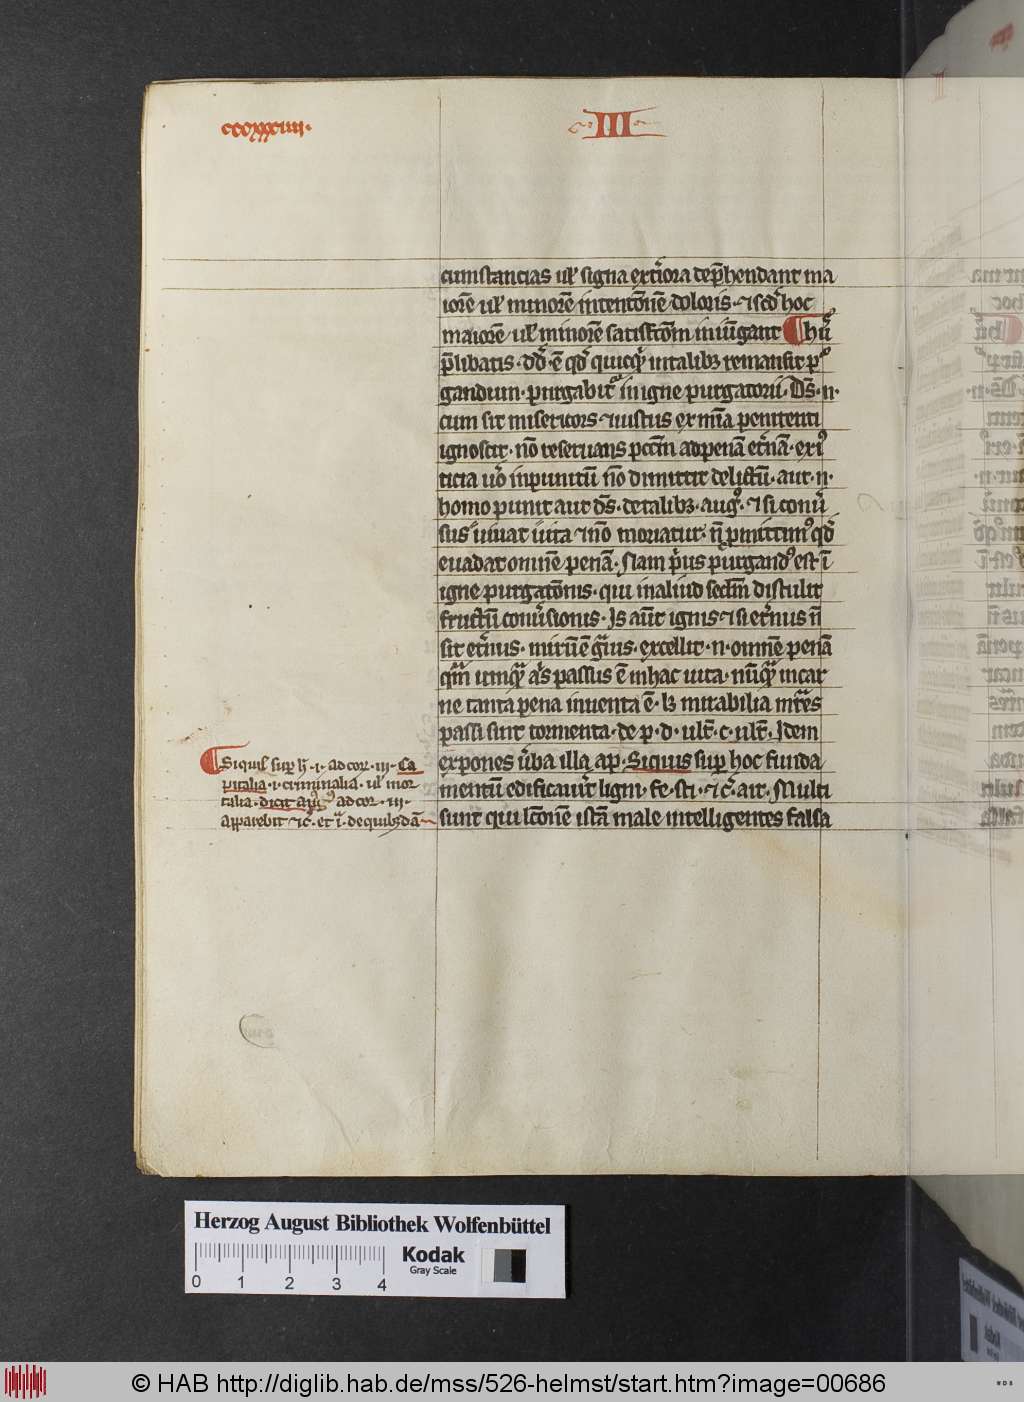 cccxxxiiii.
III
cumstancias ul' signa ext̓iora dep̄hendant ma
iorē ul' minorē intentōnē doloris · ⁊ scd̓ hoc
maiorē · ul' minorē satisfctōm iniūgant ¶ hiis
p̄libatis · dd̄ · ē qd̓ quicq̓ intalibꝫ remansit pur
gandum · purgabit̓ in igne purgatorii · Ds̄ · n ·
cum sit misericors ⁊ iustus ex mīa penitenti
ignoscit · nō reseruans pccm̄ ad penā et̓nā · ex ius
ticia uō inpunitū nō dimittit delictū · aut · n ·
homo punit aut ds̄ · de talibꝫ · aug̓ · ⁊ si conū
sus uiuat uita ⁊ nō moriatur · n̄ p̄mittimꝰ qd̓
euadat omnē penā · Nam p̓us purgandꝰ est ī
igne purgatōnis · qui in aliud seclm̄ distulit
fructū conūsionis · Is aūt ignis ⁊ si et̓nus n̄
sit et̓nus · mirū ē g̓uis · excellit · n · omnē penā
qm̄ umq̄ q̓s passus ē in hac uita · nūq̄ in car
ne tanta pena inuenta ē · lꝫ mirabilia mr̄es
passi sint tormenta · de p · d · ult̄ · c · ult̄ · Idem
expones ūba illa ap̄ · Siquis sup̄ hoc funda
mentū edificauīt ligni · fe · sti · ⁊ c̓ · ait · Multi
sunt qui lc̄onē istā male intelligentes falsa
¶ Siquis sup̄ h̄ · i · ad cor · iii · Ca
pitalia · i · criminalia · ul' mor
talia · dicit apꝰ ad cor · iii ·
apparebit ⁊ c̓ · et ī · de quibꝫdā
Herzog August Bibliothek Wolfenbüttel
0 1 2 3 4
Kodak
Gray Scale
© HAB http://diglib.hab.de/mss/526-helmst/start.htm?image=00686